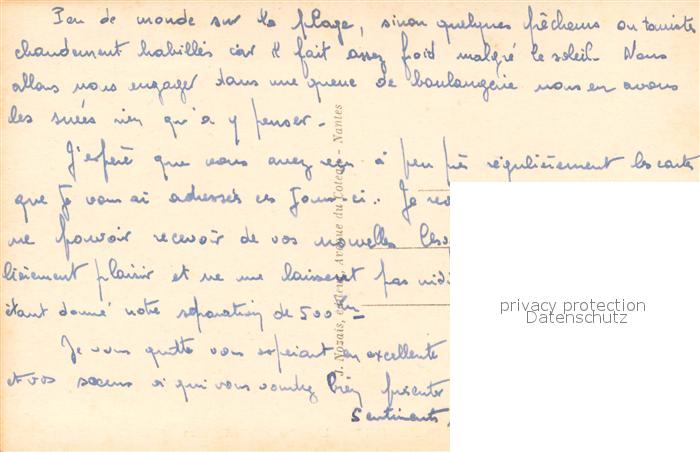 Peu de monde sur la plage, sinon quelques pêcheurs ou touristes
chaudement habillés car il fait assez froid malgré le soleil. Nous
allons nous engager dans une queue de boulangerie nous en avons
les suées rien qu'à y penser.
J'espère que vous avez reçu à peu près régulièrement les cartes
que je vous ai adressées ces jours ci. Je
ne pouvoir recevoir de vos nouvelles
lièrement plaisir et ne me laisseret pas
étant donné notre séparation de 500 km
Je vous quitte vous espérant en excellente
et vos soeurs à qui vous voudrez bien présenter
Sentiments,
J. Nozais, éditeur, Avenue du Coteau - Nantes
privacy protection
Datenschutz